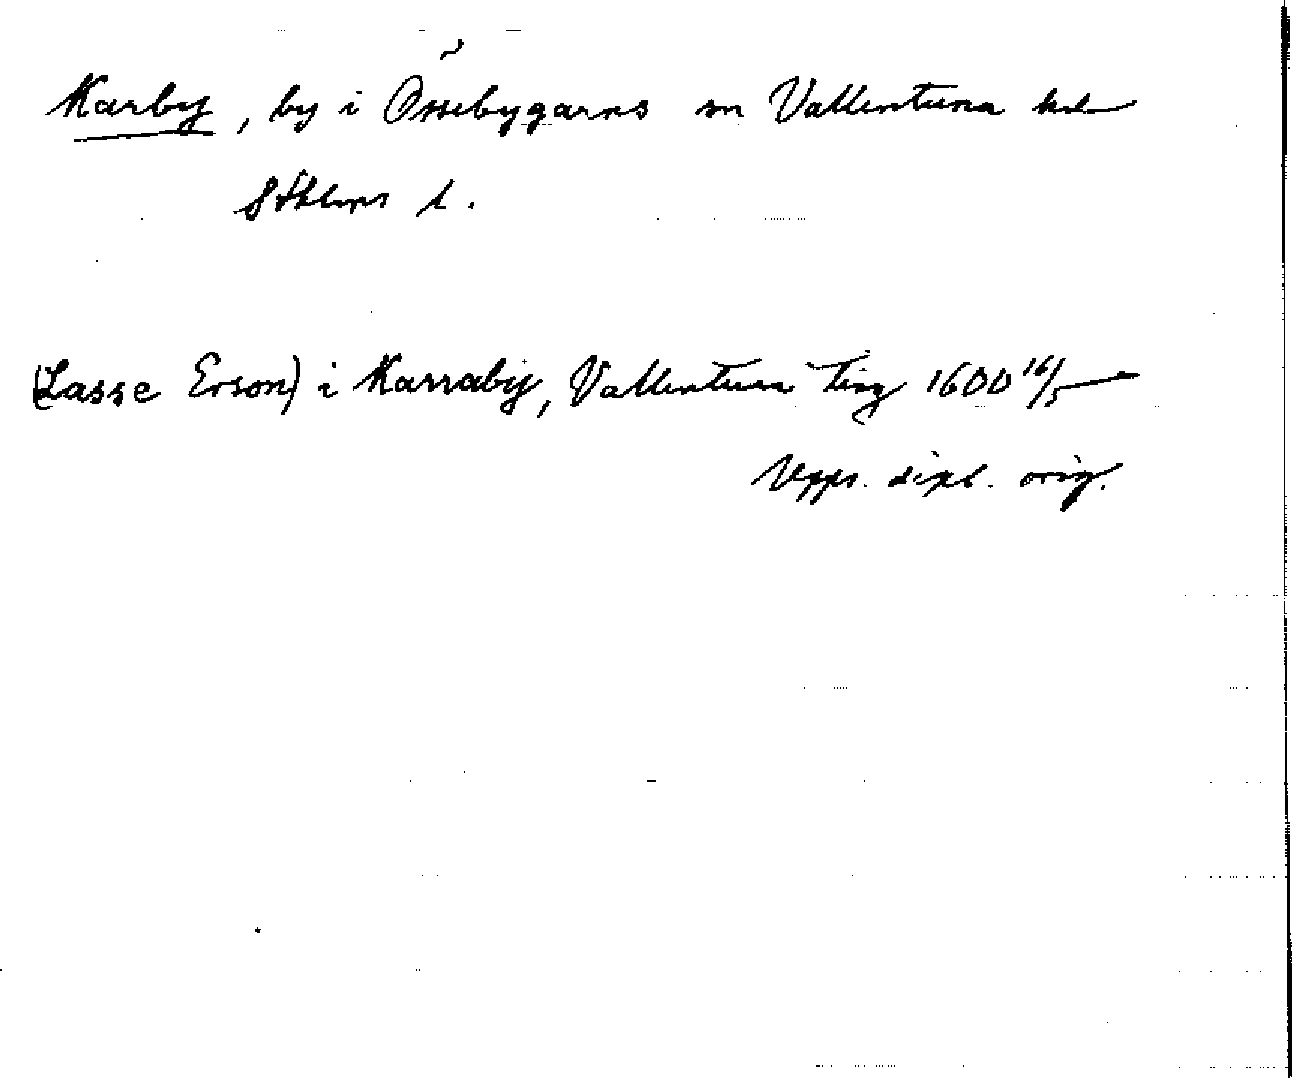 Karby, by i Össebygarns sn Vallentuna hd
Sthlms l.
(Lasse Erson) i Karraby, Vallentuna Ting 1600 16/5
Upps. dipl. orig.